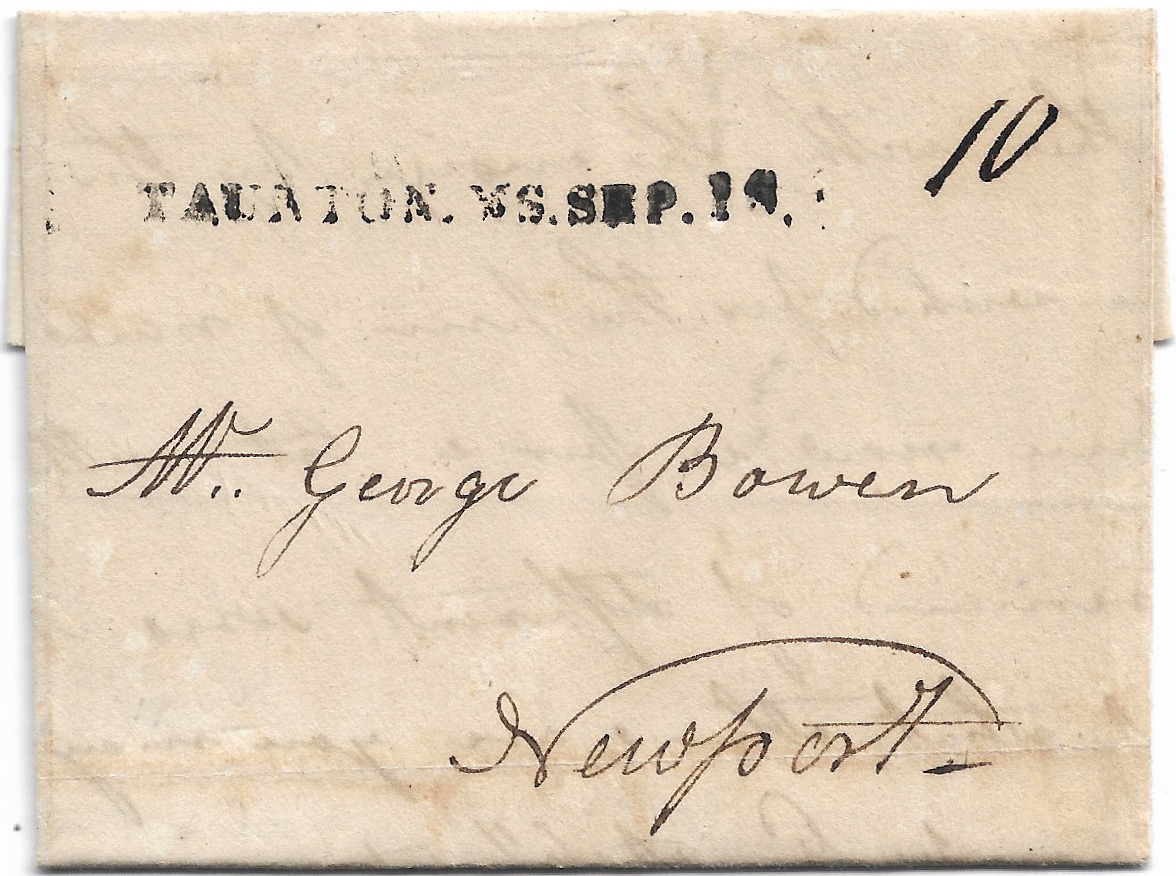 10
TAUNTON. MS. SEP. 14.
Mr. George Bowen
Newport